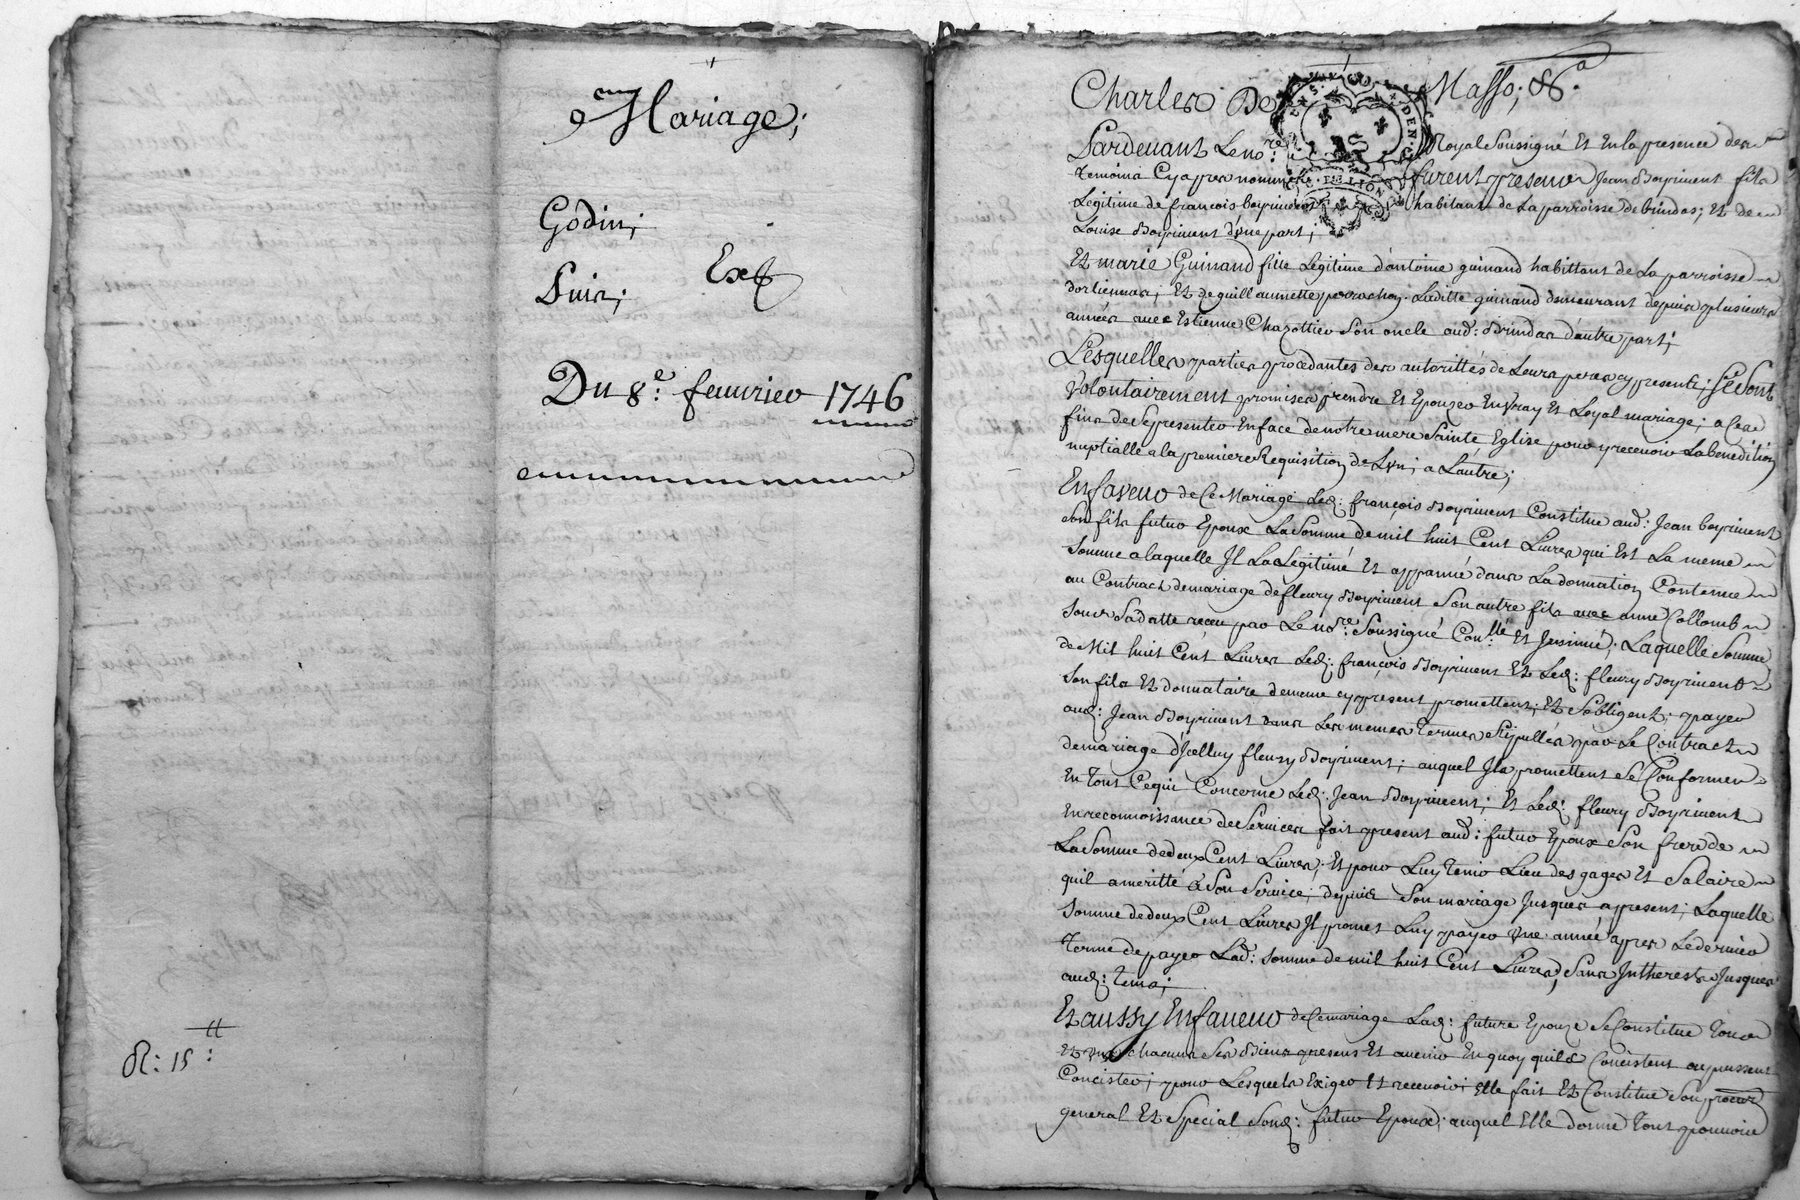 Mariage;
Godin;
Puis;
Ex
Du 8.e feuvrier 1746
R: 15 tt:
Charles De Masso; &.a
Pardevant Le no.re Royal Soussigné Et En la presence des
temoins Cy apres nommés furent presens Jean Boyriuent fils
Légitime de françois boyriuent habitant de La parroisse de brindas; Et de
Louise Boyriuent d'une part;
Et marie Guinand fille Légitime d'antoine guinand habittant de La parroisse
dorliennas; Et de guillaumette perrachon. Laditte guinand demeurant depuis plusieurs
années avec Estienne Chazottier Son oncle aud: Brindas d'autre part;
Lesquelles parties procedantes des autorittés de Leurs peres cy presents; Se Sont
Volontairement promises prendre Et Epouzer En Vray Et Loyal mariage; a Ces
fins de Se presenter En face de notre mere Sainte Eglise pour y recevoir La benedition
nuptialle a la premiere Requisition de L'un; a L'autre;
En faveur de Ce Mariage Led: françois Boyriuent Constitue aud: Jean boyriuent
Son fils futur Epoux La Somme de mil huit Cent Livres qui Est La meme
Somme a laquelle Il La Légitimé Et appanné dans La donnation Contenue
au Contract de mariage de fleury Boyriuent Son autre fils avec anne Collomb
Sous Sa datte receu par Le no.re Soussigné Con.llé Et Insinué; Laquelle Somme
de Mil huit Cent Livres Led: françois Boyriuent Et Led: fleury Boyriuent
Son fils Et donnataire de meme cy present promettent; Et S'obligent; payer
aud: Jean Boyriuent dans Les memes Termes Stipullés par Le Contract
de mariage d'Icelluy fleury Boyriuent; auquel Ils promettent Se Conformer
En Tout Ce qui Concerne Led: Jean Boyriuent; Et Led: fleury Boyriuent
En reconnoissance de Services fait present aud: futur Epoux Son frere de
La Somme de deux Cent Livres; Et pour Luy Tenir Lieu des gages Et Salaire
quil a meritté a Son Service; depuis Son mariage Jusques a present; Laquelle
Somme de deux Cent Livres Il promet Luy payer Une année apres Le dernier
Terme de payer Lad: Somme de mil huit Cent Livres, Sans Intherests Jusques
aud: Tems;
Et aussy En faveur de Ce mariage Lad: future Epouze Se Constitue Tous
Et Uns Chacuns Ses Biens presens Et avenir En quoy quils Concistent ou pussent
Concister; pour Lesquels Exiger Et recevoir Elle fait Et Constitue Son procur
general Et Special Sond: futur Epoux; auquel Elle donne Tout pouvoir